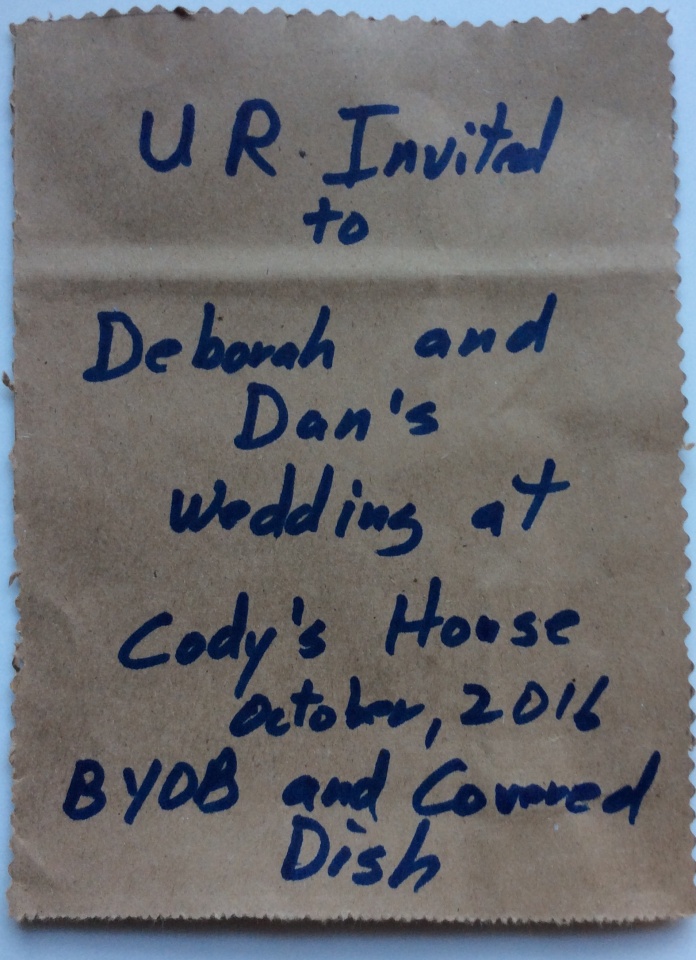 U R Invited
to
Deborah and
Dan's
Wedding at
Cody's House
October, 2016
BYOB and Covered
Dish